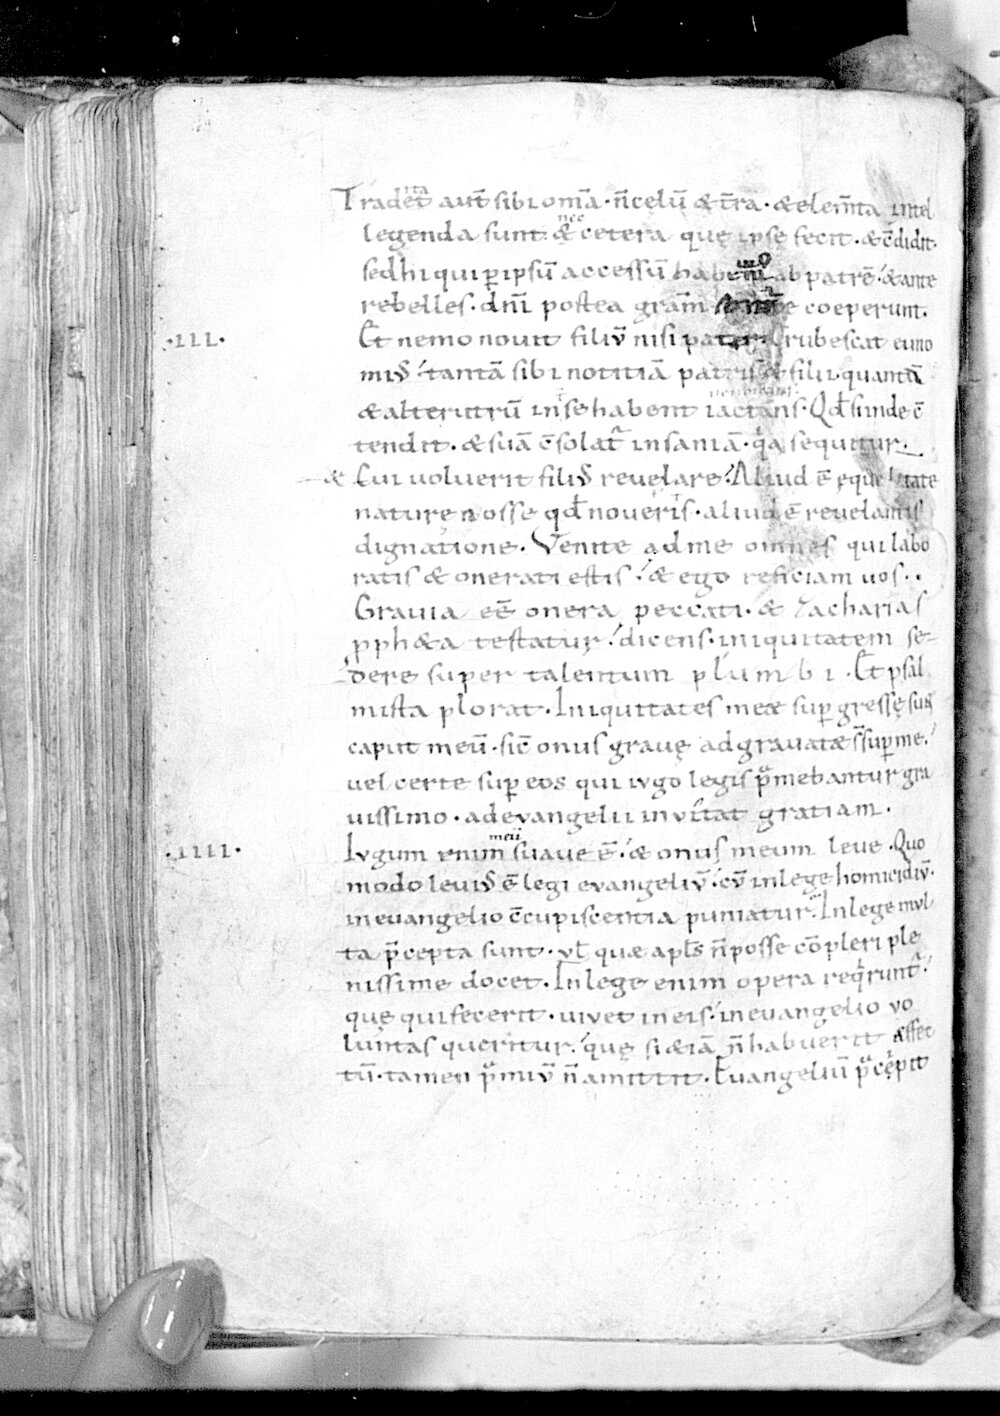 Tradet aut̄ sibi om̄a · n̄ celū & t̄ra · & elem̄ta intel
legenda sunt · & cetera quę ipse fecit · & c̄didit ·
sed hi qui p̱ ipsū accessū habent ab patrē · & ante
rebelles · dn̄m postea coeperunt ·
·III· Et nemo novit filiū nisi pater · Erubescat euno
miꝰ tantā sibi notitiā patris & filii · quantū
& alterutrū in se habent iactans · Qd̄ si inde c̄
tendit · & suā c̄solat᷑ insaniā · q̇a sequitur ·
& Cui voluerit filiꝰ revelare · Aliud ē equalitate
naturę nosse qd̄ noveris · aliud ē revelantis
dignatione · Venite ad me omnes qui labo
ratis & onerati estis · & ego reficiam vos ··
Gravia eē onera peccati · & Zacharias
ꝓph&a testatur · dicens · iniquitatem se-
dere super talentum plumbi · Et psal
mista plorat · Iniquitates meæ sup̱ gressę sunt
caput meū · sic̄ onus gravę adgravatæ s̄ sup̱ me ·
vel certe sup̱ eos qui iugo legis p̄mebantur gra
vissimo · ad evangelii invitat gratiam ·
meū
·IIII· Iugum enim suave ē · & onus meum leve · Quo
modo leviꝰ ē legi evangeliū · cū in lege homicidiū ·
in evangelio c̄cupiscentia puniatur · In lege mul
ta p̄cepta sunt · vl̄ quæ apl̄s n̄ posse cōpleri ple
nissime docet · In lege enim opera req̇runt᷑ ·
quę qui fecerit · vivet in eis · in evangelio vo
luntas queritur · quę si &iā n̄ habuerit æffec
tū · tamen p̄miū n̄ amittit · Evangeliū p̄cepit